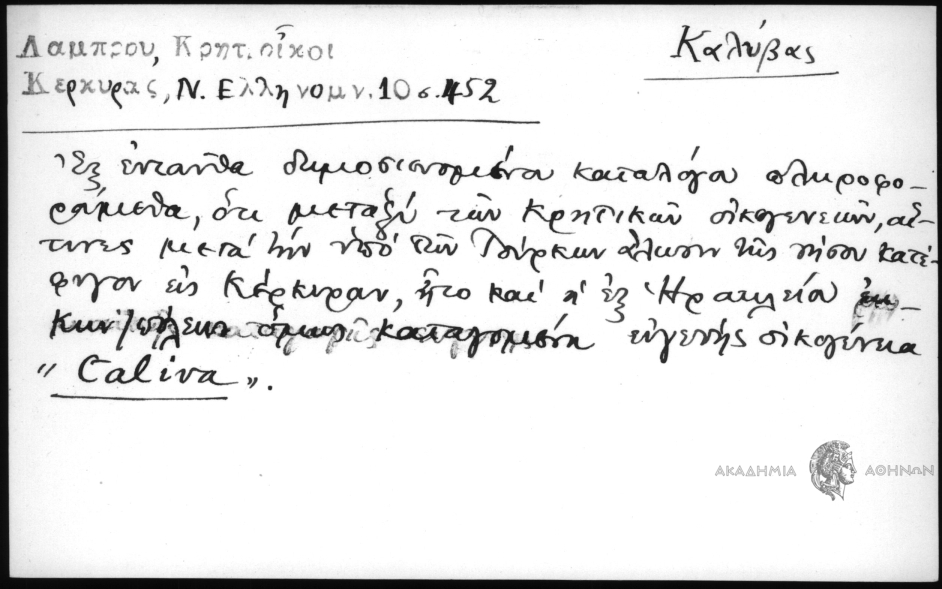 Λαμπρου, Κρητ. οἶκοι
Καλύβας
Κερκυρας, Ν. Ελληνομν. 10 σ. 452
Ἐξ ἐνταῦθα δημοσιευομένου καταλόγου πληροφο-
ρούμεθα, ὅτι μεταξὺ τῶν Κρητικῶν οἰκογενειῶν, αἵ-
τινες μετὰ τὴν ὑπὸ τῶν Τούρκων ἅλωσιν τῆς νήσου κατέ-
φυγον εἰς Κέρκυραν, ἦτο καὶ ἡ ἐξ Ἡρακλείου
καταγομένη εὐγενὴς οἰκογένεια
„ Caliva ".
ΑΚΑΔΗΜΙΑ ΑΘΗΝΩΝ